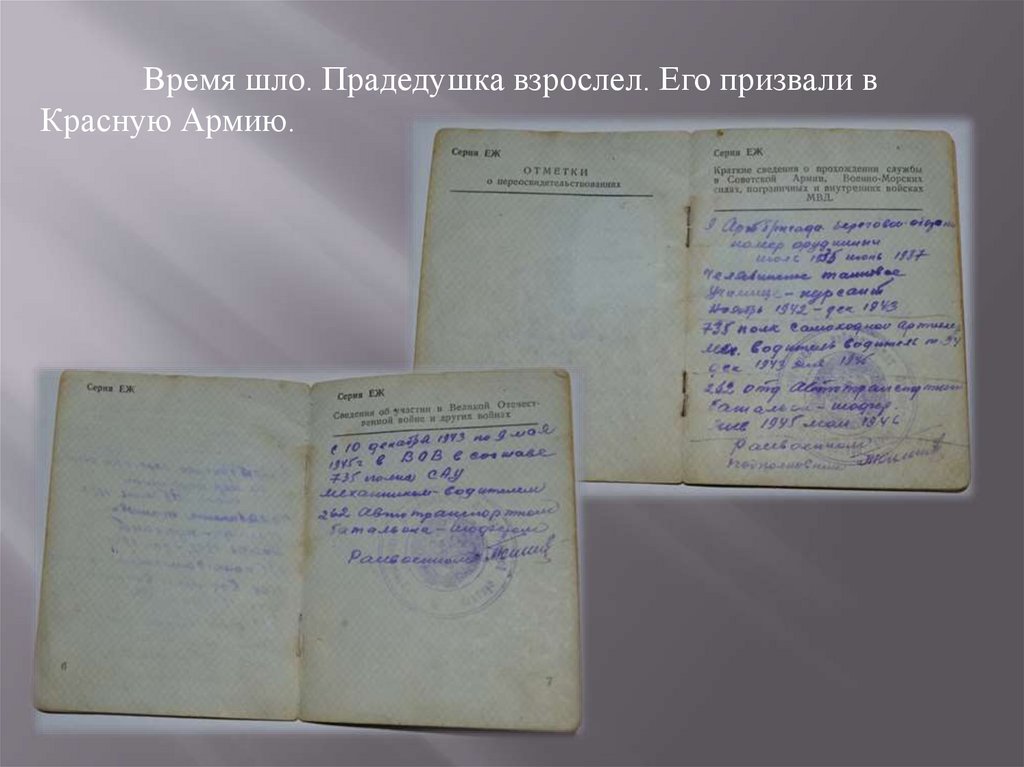 Время шло. Прадедушка взрослел. Его призвали в
Красную Армию.
Серия ЕЖ
ОТМЕТКИ
о переосвидетельствованиях
Серия ЕЖ
Краткие сведения о прохождении службы
в Советской Армии, Военно-Морских
силах, пограничных и внутренних войсках
МВД.
Артбригада береговой
номер орудийный
1935 июнь 1937
Челябинское танковое
Училище - курсант
Ноябрь 1942 - дек 1943
735 полк самоходной
мех. водитель водитель т-34
дек 1943
262 отд Автотранспортн
батальон - шофер
1945 май 1946
Райвоенком
Подполковник
Серия ЕЖ
6
Серия ЕЖ
Сведения об участии в Великой Отечест-
венной войне и других войнах
с 10 декабря 1943 по 9 мая
1945г в ВОВ в составе
735 полка САУ
механиком-водителем
262 Автотранспортном
батальона - шофером
Райвоенком
7